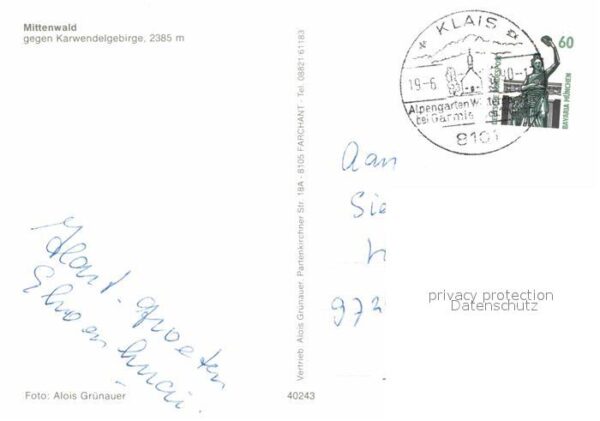 Mittenwald
gegen Karwendelgebirge, 2385 m
Hart. groeten
Foto: Alois Grünauer
40243
Vertrieb Alois Grünauer, Partenkirchner Str. 18A - 8105 FARCHANT - Tel. 08821-61183
KLAIS
19-6
Alpengarten
bei Garmis
8101
60
BAVARIA MÜNCHEN
Aan
Sie
privacy protection
Datenschutz